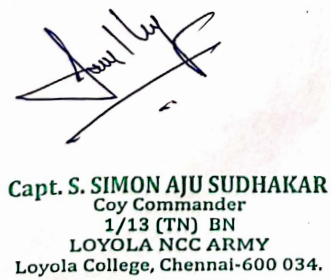 Capt. S. SIMON AJU SUDHAKAR
Coy Commander
1/13 (TN) BN
LOYOLA NCC ARMY
Loyola College, Chennai-600 034.